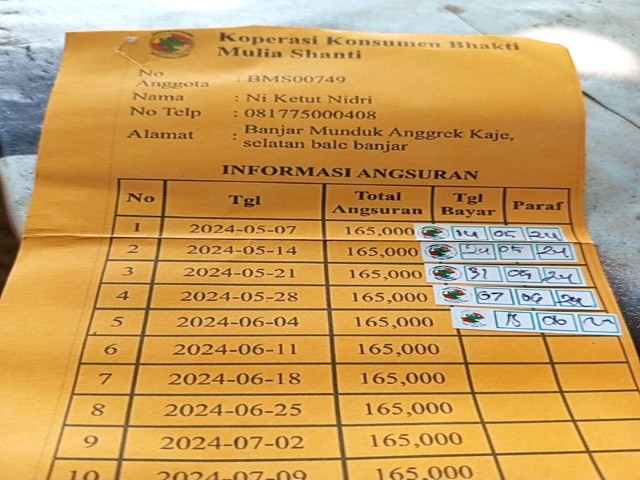 Koperasi Konsumen Bhakti
Mulia Shanti
No Anggota : BMS00749
Nama : Ni Ketut Nidri
No Telp : 081775000408
Alamat : Banjar Munduk Anggrek Kaje,
selatan bale banjar
INFORMASI ANGSURAN
No Tgl Total Angsuran Tgl Bayar Paraf
1 2024-05-07 165,000 14 05 24
2 2024-05-14 165,000 24 05 24
3 2024-05-21 165,000 31 05 24
4 2024-05-28 165,000 07 06 24
5 2024-06-04 165,000 15 06
6 2024-06-11 165,000
7 2024-06-18 165,000
8 2024-06-25 165,000
9 2024-07-02 165,000
10 2024-07-09 165,000